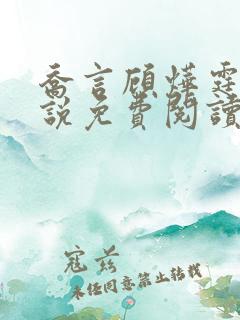 喬言顧燁霆
說免費閱讀
寇茲
未经同意禁止转载